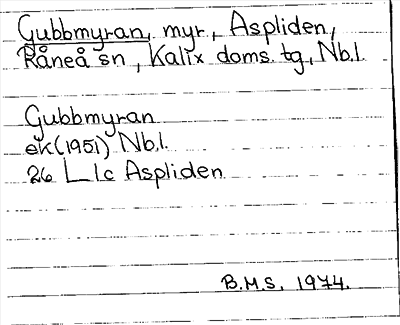 Gubbmyran, myr, Aspliden,
Råneå sn, Kalix doms. tg, Nb.l.
Gubbmyran
ek(1951) Nb.l.
26 L lc Aspliden
B.M.S. 1974.